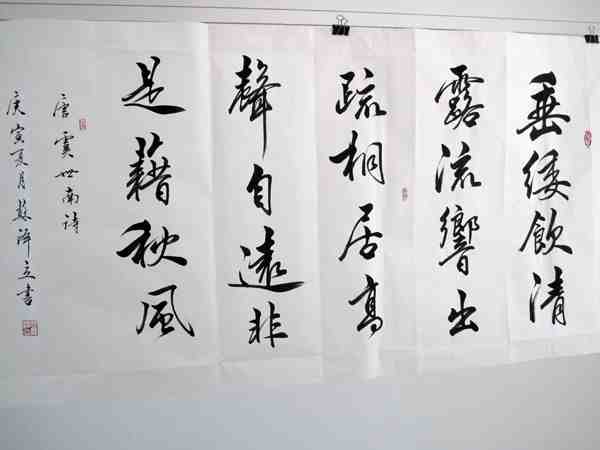 垂緌飲清
露流響出
疏桐居高
聲自遠非
是藉秋風
唐虞世南詩
庚寅夏月蘇立書